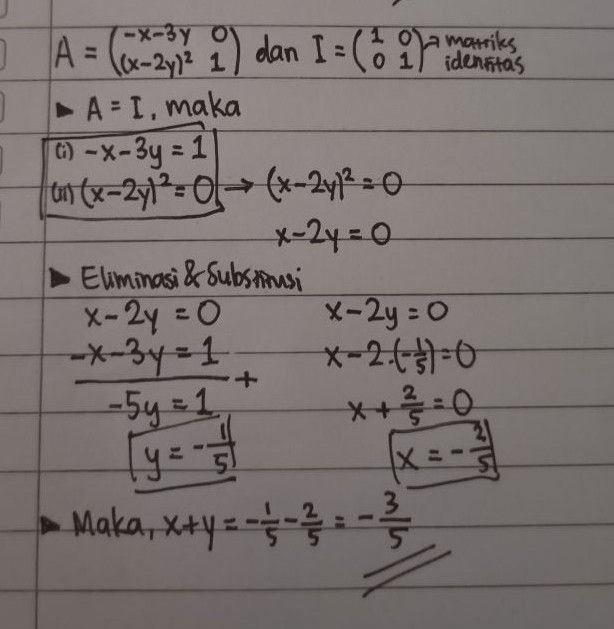 A = (-x-3y 0 (x-2y)² 1) dan I = (1 0 0 1) → matriks identitas
► A = I, maka
(i) -x-3y = 1
(ii) (x-2y)² = 0 → (x-2y)² = 0
x-2y = 0
► Eliminasi & Substitusi
x-2y = 0 x-2y = 0
-x-3y = 1 + x-2.(-1/5) = 0
-5y = 1 x + 2/5 = 0
y = -1/5 x = -2/5
► Maka, x+y = -1/5 - 2/5 = -3/5